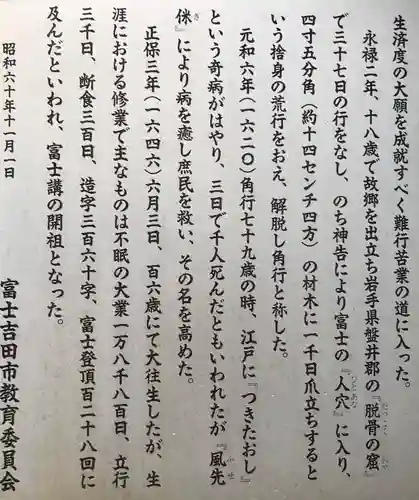 生済度の大願を成就すべく難行苦業の道に入った。
永禄二年、十八歳で故郷を出立ち岩手県盤井郡の『脱骨の窟』
で三十七日の行をなし、のち神告により富士の『人穴』に入り、
四寸五分角（約十四センチ四方）の材木に一千日爪立ちすると
いう捨身の荒行をおえ、解脱し角行と称した。
元和六年（一六二〇）角行七十九歳の時、江戸に『つきたおし』
という奇病がはやり、三日で千人死んだともいわれたが『風先
侎』により病を癒し庶民を救い、その名を高めた。
正保三年（一六四六）六月三日、百六歳にて大往生したが、生
涯における修業で主なものは不眠の大業一万八千八百日、立行
三千日、断食三百日、造字三百六十字、富士登頂百二十八回に
及んだといわれ、富士講の開祖となった。
昭和六十年十一月一日
富士吉田市教育委員会